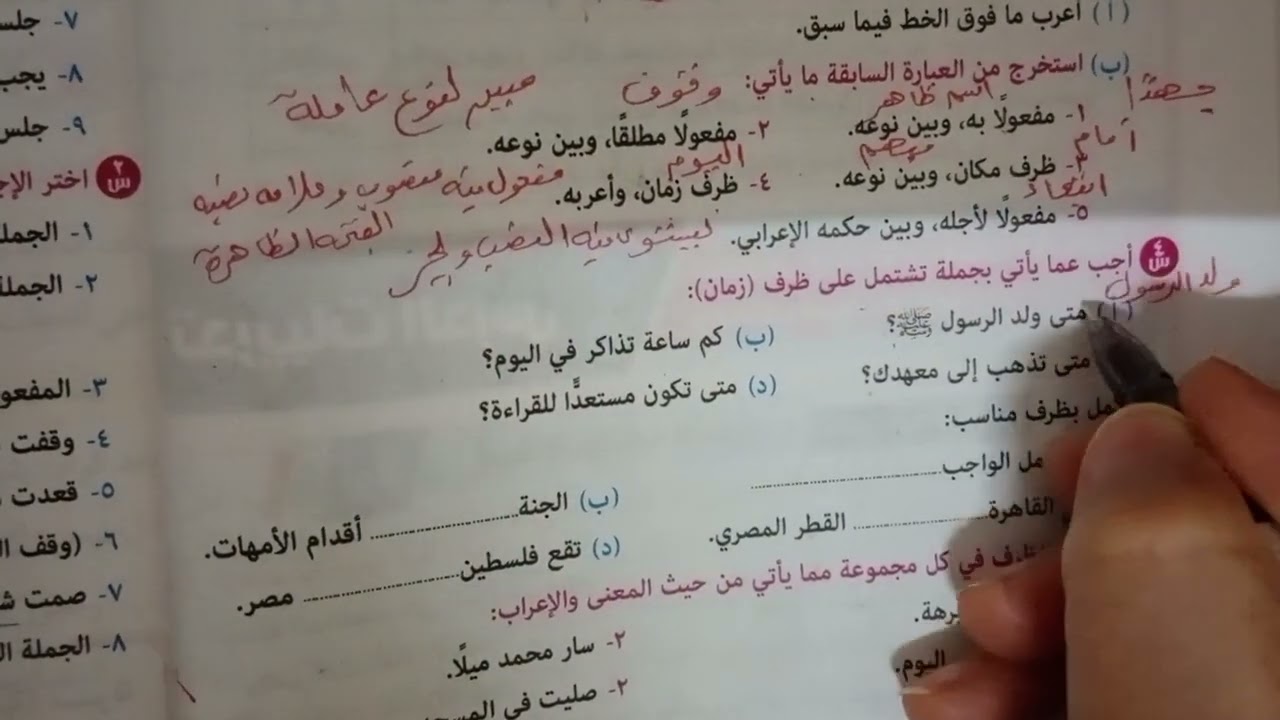 (أ) أعرب ما فوق الخط فيما سبق.
(ب) استخرج من العبارة السابقة ما يأتي:
وقوف
مبين لنوع عامله
اسم ظاهر
١- مفعولًا به، وبين نوعه.
٢- مفعولًا مطلقًا، وبين نوعه.
أمام
مبهم
اليوم
مفعول فيه منصوب وعلامة نصبه
٣- ظرف مكان، وبين نوعه.
٤- ظرف زمان، وأعربه.
الفتحة الظاهرة
٥- مفعولًا لأجله، وبين حكمه الإعرابي.
يستوي فيه النصب والجر
س٤ أجب عما يأتي بجملة تشتمل على ظرف (زمان):
ولد الرسول
(أ) متى ولد الرسول ﷺ؟
(ب) كم ساعة تذاكر في اليوم؟
متى تذهب إلى معهدك؟
(د) متى تكون مستعدًّا للقراءة؟
بظرف مناسب:
الواجب ..........
(ب) الجنة .......... أقدام الأمهات.
القاهرة .......... القطر المصري.
(د) تقع فلسطين .......... مصر.
في كل مجموعة مما يأتي من حيث المعنى والإعراب:
٢- سار محمد ميلًا.
اليوم.
٢- صليت في
٧- جلس
٨- يجب
٩- جلس
س٢ اختر الإج
١- الجملة
٢- الجملة
٣- المفعو
٤- وقفت
٥- قعدت
٦- (وقف ال
٧- صمت
٨- الجملة ال